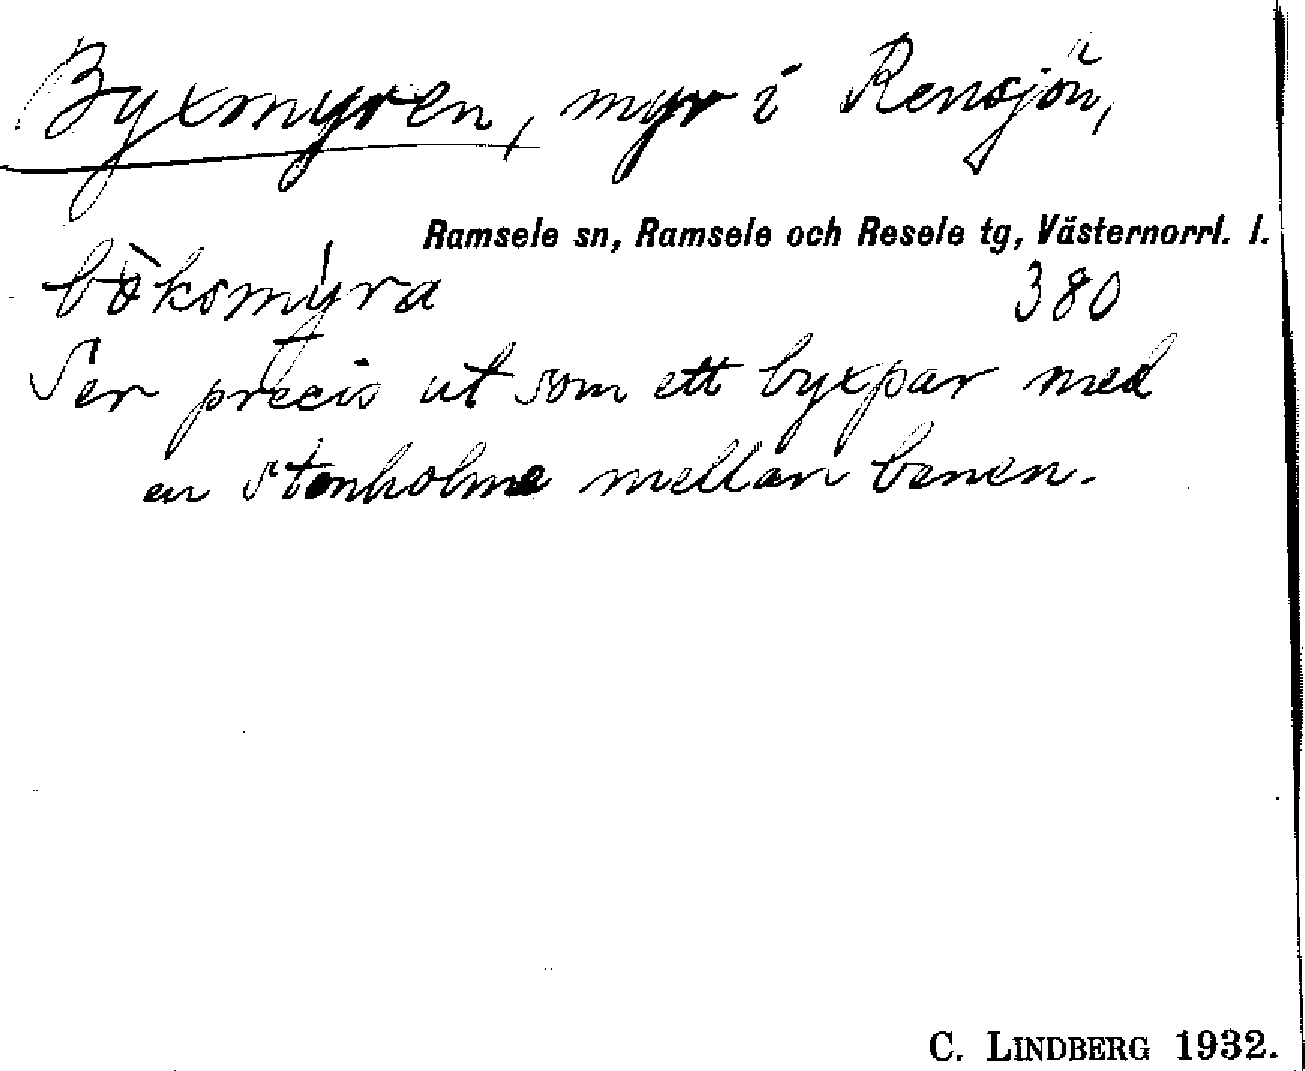 Byxmyren, myr i Rensjön,
Ramsele sn, Ramsele och Resele tg, Västernorrl. l.
bö̀ksmýra 380
Ser precis ut som ett byxpar med
en stenholme mellan benen.
C. LINDBERG 1932.